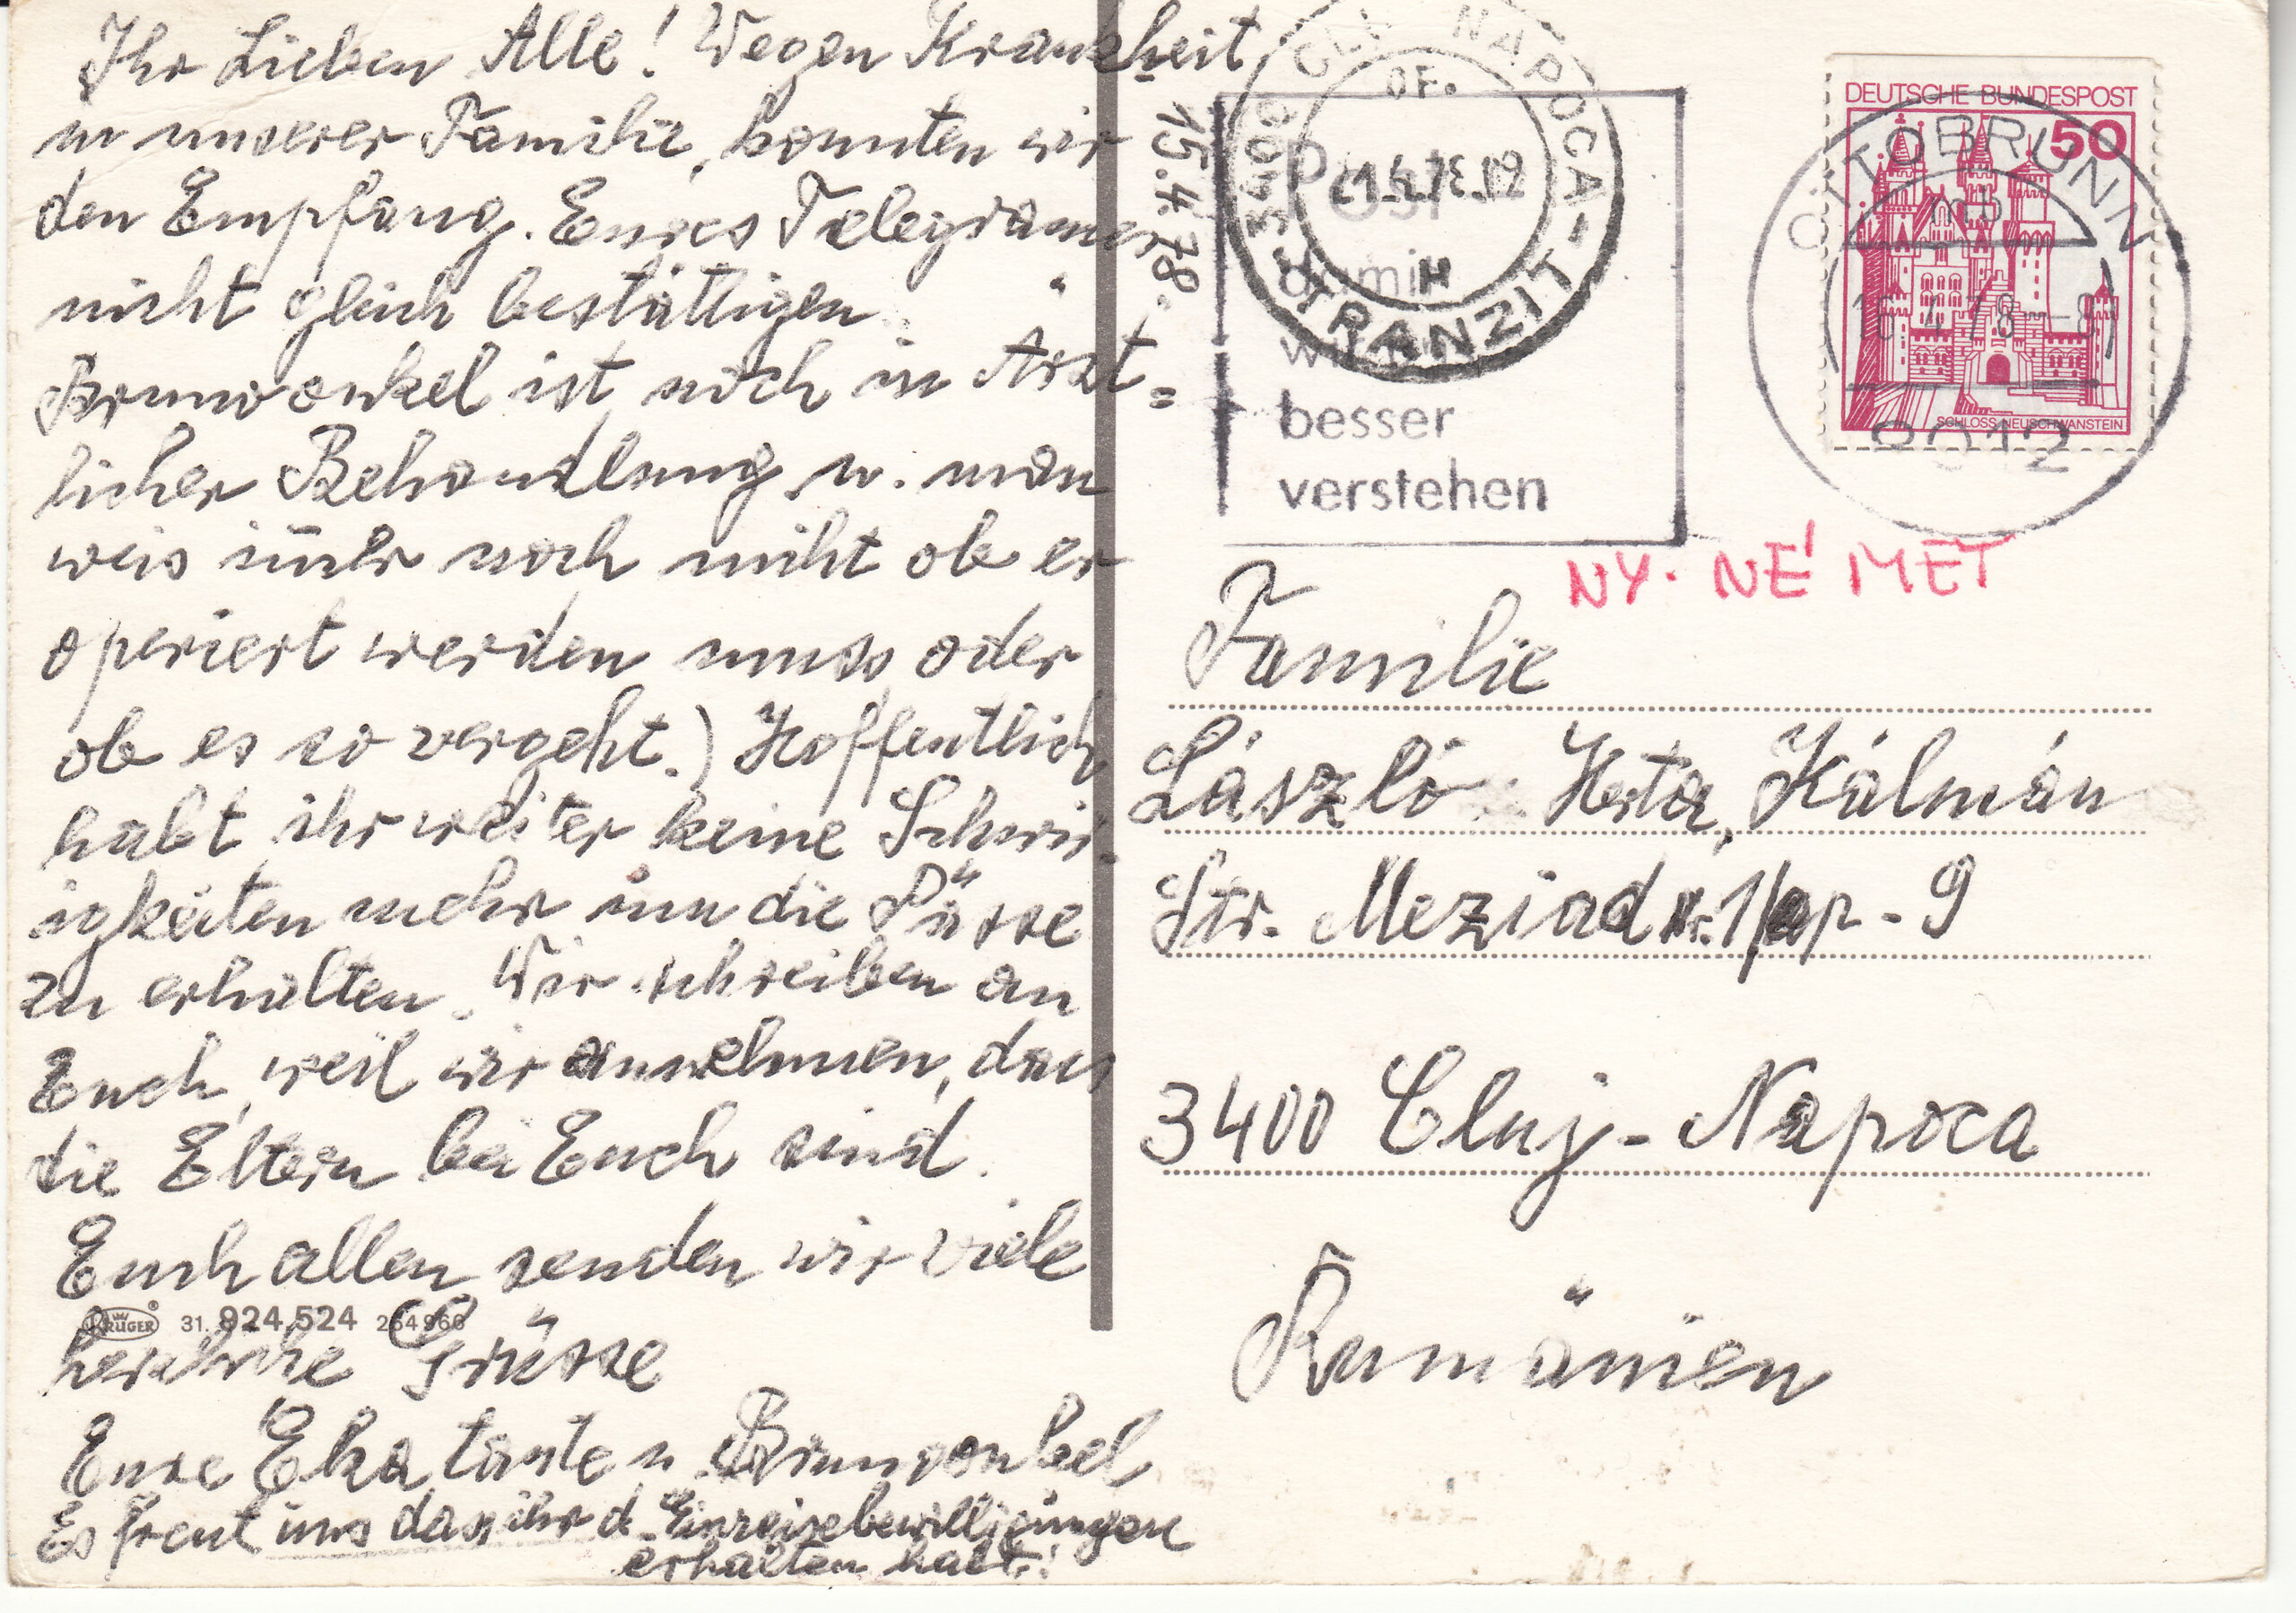 Ihr Lieben Alle! Wegen Krankheit
in unserer Familie, konnten wir
den Empfang. Eures Telegrames
nicht gleich bestättigen.
Brunoonkel ist noch in Ärzt=
licher Behandlung u. man
weis im̄er noch nicht ob er
operiert werden muss oder
ob es so vergeht.) Hoffentlich
habt ihr weiter keine Schwier-
igkeiten mehr um die Pässe
zu erhalten. Wir schreiben an
Euch, weil wir annehmen, dass
die Eltern bei Euch sind.
Euch allen senden wir viele
herzliche Grüsse
Eure Eka tante u Brunoonkel
Es freut uns dass ihr d. Einreisebewilligungen
erhalten habt!
15.4.78.
KRÜGER 31.924.524 264966
CLUJ NAPOCA - TRANZIT
3400
OF.
H
damit
wir uns
besser
verstehen
DEUTSCHE BUNDESPOST
50
SCHLOSS NEUSCHWANSTEIN
OTTOBRUNN
mb
16.4.78-8
8012
NY. NÉMET
Familie
László Herta, Kálmán
Str. Meziad nr.1/ap-9
3400 Cluj-Napoca
Rumänien